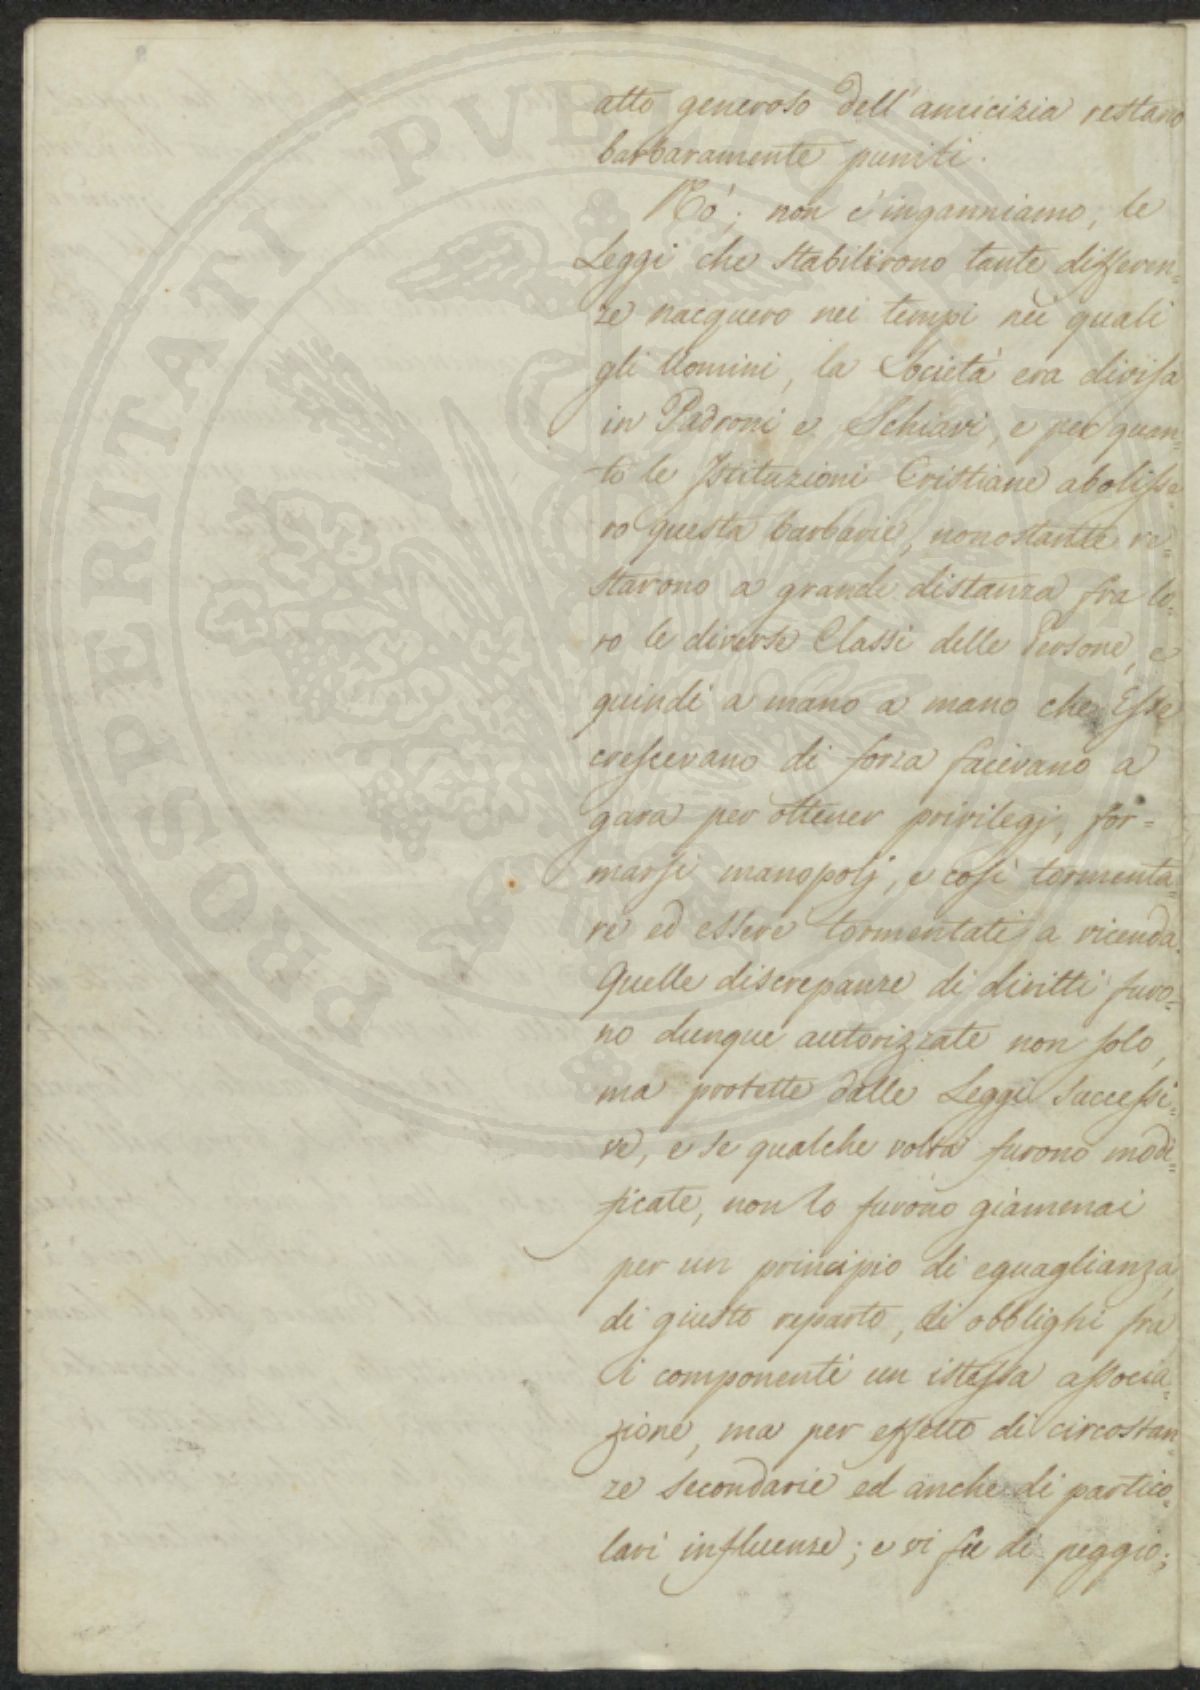 atto generoso dell'amicizia restano
barbaramente puniti.
Nò; non c'inganniamo, le
Leggi che stabilirono tante differen=
ze nacquero nei tempi nei quali
gli Uomini, la Società era divisa
in Padroni e Schiavi, e per quan=
to le Istituzioni Cristiane abolisse
ro questa barbarie, nonostante re=
starono a grande distanza fra lo=
ro le diverse Classi delle Persone, e
quindi a mano a mano che Esse
crescevano di forza facevano a
gara per ottener privilegj, for=
marsi manopolj, e così tormenta=
re ed essere tormentati a vicenda.
Quelle discrepanze di diritti furo=
no dunque autorizzate non solo,
ma protette dalle Leggi successi=
ve, e se qualche volta furono modi=
ficate, non lo furono giammai
per un principio di eguaglianza,
di giusto reparto, di obblighi fra
i componenti un istessa associa=
zione, ma per effetto di circostan=
ze secondarie ed anche di partico=
lari influenze; e vi fu di peggio;
PROSPERITATI PUBLICAE